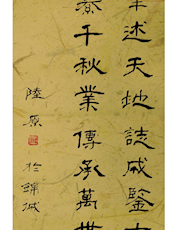 述天地誌鑒
千秋業傳承萬
陸原
於錦城